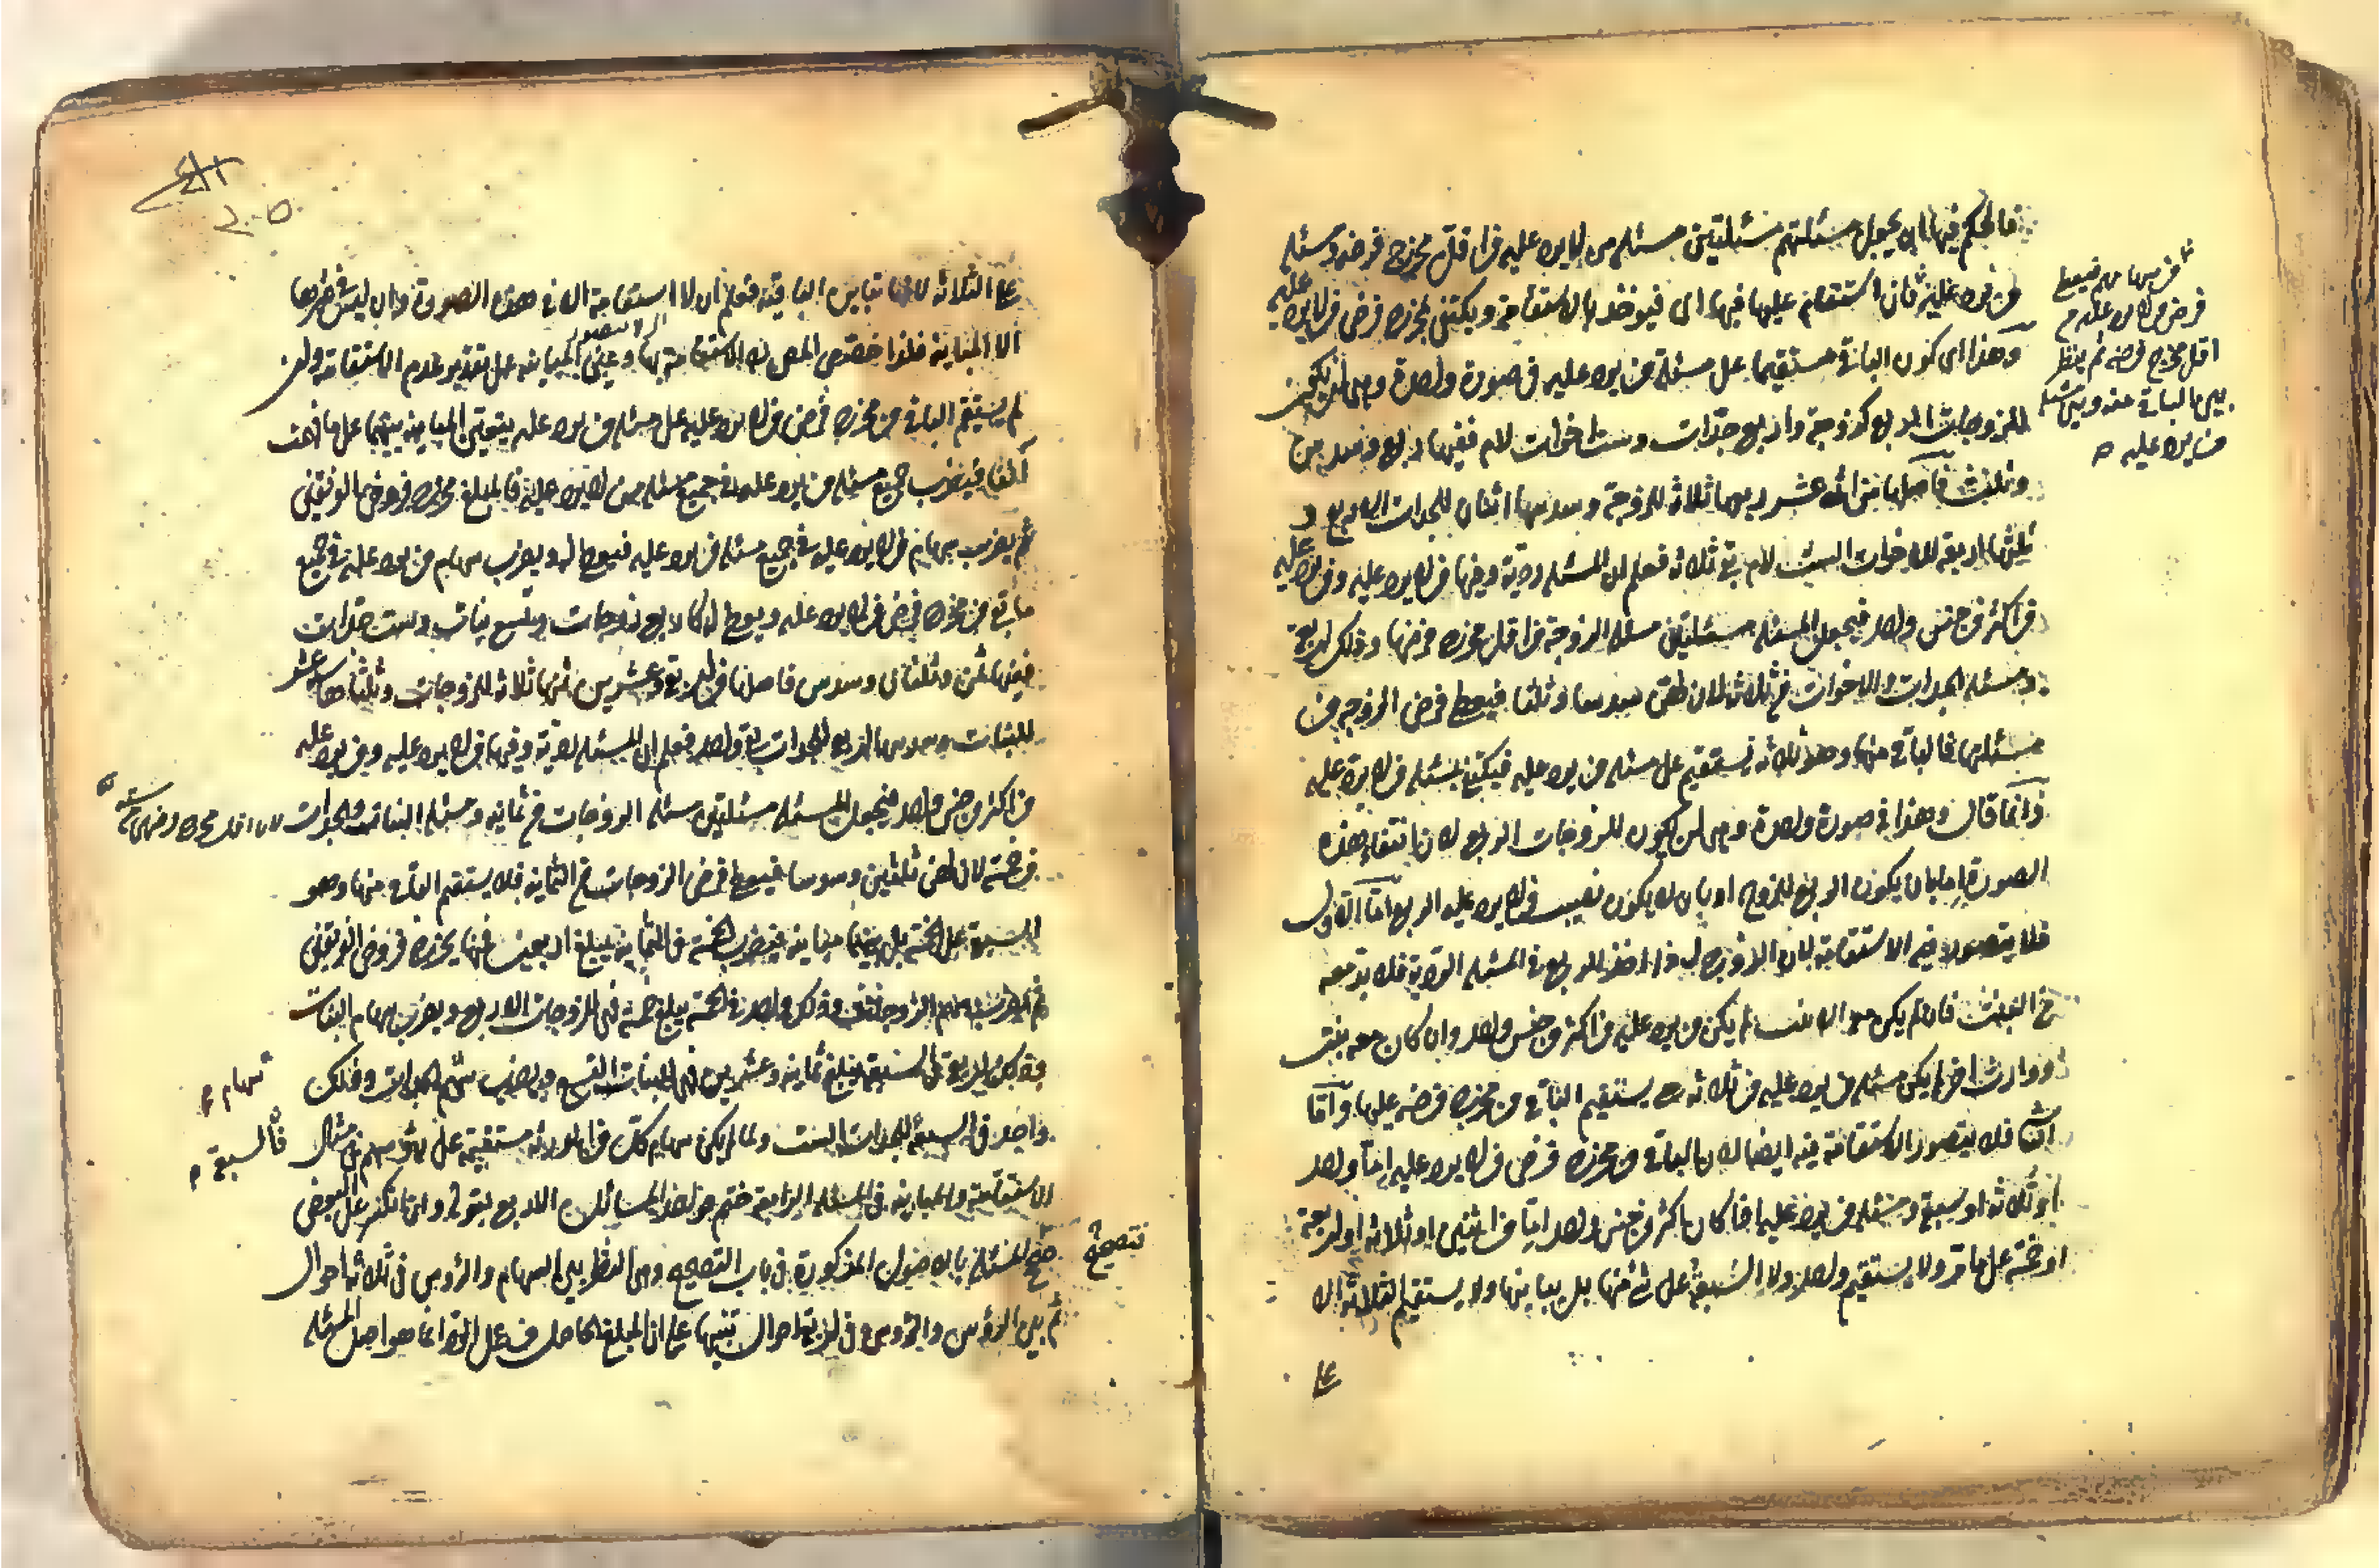 فالحكم فيها ان يجعل مسئلتهم مسئلتين مسئلة من لا يرد عليه من اقل مخرج فرضه ومسئلة
من يرد عليه فان استقام عليها فيها اى فيؤخذ بالاستقامة ويكتفى بمخرج فرض من لا يرد عليه
وهذا اى كون الباقى مستقيما على مسئلة من يرد عليه فى صورة واحدة وهى ان يكون
للزوجات الربع كزوجة واربع جدات وست اخوات لام ففيها ربع وسدس
وثلث فاصلها من اثنى عشر ربعها ثلاثة للزوجة وسدسها اثنان للجدات الاربع و
ثلثها اربعة للاخوات الست لام بقى ثلاثة فعلم ان المسئلة ردية وفيها من لا يرد عليه ومن يرد عليه
من اكثر من جنس واحد فيجعل المسئلة مسئلتين مسئلة الزوجة من اقل مخرج فرضها وذلك اربعة
ومسئلة الجدات والاخوات من ثلاثة لان حقهن سدسا وثلثا فيعطى فرض الزوجة من
مسئلتها فالباقى منها وهو ثلاثة يستقيم على مسئلة من يرد عليه فيكتفى بمسئلة من لا يرد عليه
وانما قال وهذا فى صورة واحدة وهى ان يكون للزوجات الربع لان انتفاء هذه
الصورة اما بان يكون الربع للزوج او بان لا يكون نصيب من لا يرد عليه الربع اما الاول
فلا يتصور فيه الاستقامة لان الزوج اذا اخذ الربع فى المسئلة الردية فلا بد معه
من البنت فان لم يكن معه الا بنت لم يكن من يرد عليه من اكثر من جنس واحد وان كان معه بنت
ووارث اخر لم يكن مسئلة من يرد عليه من ثلاثة حتى يستقيم الباقى من مخرج فرضه عليها واما
الثانى فلا يتصور الاستقامة فيه ايضا لان الباقى من مخرج فرض من لا يرد عليه اما واحد
او ثلاثة او سبعة ومسئلة من يرد عليه اذا كان اكثر من جنس واحد اما من اثنين او ثلاثة او اربعة
او خمسة على ما مر ولا يستقيم واحد ولا السبعة على شئ منها بل يباينها ولا يستقيم الثلاثة الا
على
اقل مخرج فرضه ثم ينظر
بين الباقى منه وبين مسئلة
من يرد عليه
على الثلاثة لانها تباين الباقية فعلم ان لا استقامة الا فى هذه الصورة وان ليس فى غيرها
الا المباينة فلذا خصص المص الاستقامة بها وعين المباينة على تقدير عدم الاستقامة وان
لم يستقم الباقى من مخرج فرض من لا يرد عليه على مسئلة من يرد عليه يتعين المباينة بينهما على ما عرفت
آنفا فيضرب جميع مسئلة من يرد عليه فى جميع مسئلة من لا يرد عليه فالمبلغ مخرج فروض الفريقين
ثم يضرب سهام من لا يرد عليه فى جميع مسئلة من يرد عليه فيعطى له ويضرب سهام من يرد عليه فى جميع
ما بقى من مخرج فرض من لا يرد عليه ويعطى له كاربع زوجات وتسع بنات وست جدات
ففيها ثمن وثلثان وسدس فاصلها من اربعة وعشرين ثمنها ثلاثة للزوجات وثلثاها ستة عشر
للبنات وسدسها اربع للجدات بقى واحد فعلم ان المسئلة ردية وفيها من لا يرد عليه ومن يرد عليه
من اكثر من جنس واحد فيجعل المسئلة مسئلتين مسئلة الزوجات من ثمانية ومسئلة البنات والجدات
من خمسة لان حقهن ثلثين وسدسا فيعطى فرض الزوجات من الثمانية فلا يستقيم الباقى منها وهو
السبعة على الخمسة بل بينهما مباينة فيضرب الخمسة فى الثمانية يبلغ اربعين فمنها يخرج فروض الفريقين
ثم يضرب سهم الزوجات وذلك واحد فى الخمسة يبلغ خمسة فهى للزوجات الاربع ويضرب سهام البنات
وذلك اربعة فى السبعة يبلغ ثمانية وعشرين فهى للبنات التسع ويضرب سهم الجدات وذلك
واحد فى السبعة للجدات الست ولما لم يكن سهام كل من الورثة مستقيمة على رؤسهم فى مثال
الاستقامة والمباينة فى المسئلة الرابعة ختم هذه المسائل الاربع بقوله وان انكسر على البعض
تصح المسئلة بالاصول المذكورة فى باب التصحيح وهى النظر بين السهام والرؤس فى ثلاثة احوال
ثم بين الرؤس والرؤس فى اربعة احوال تنبيها على ان المبلغ الحاصل من عمل الرد انما هو اصل المسئلة
سهام
فالسبعة
تصحيح
٢٠٥